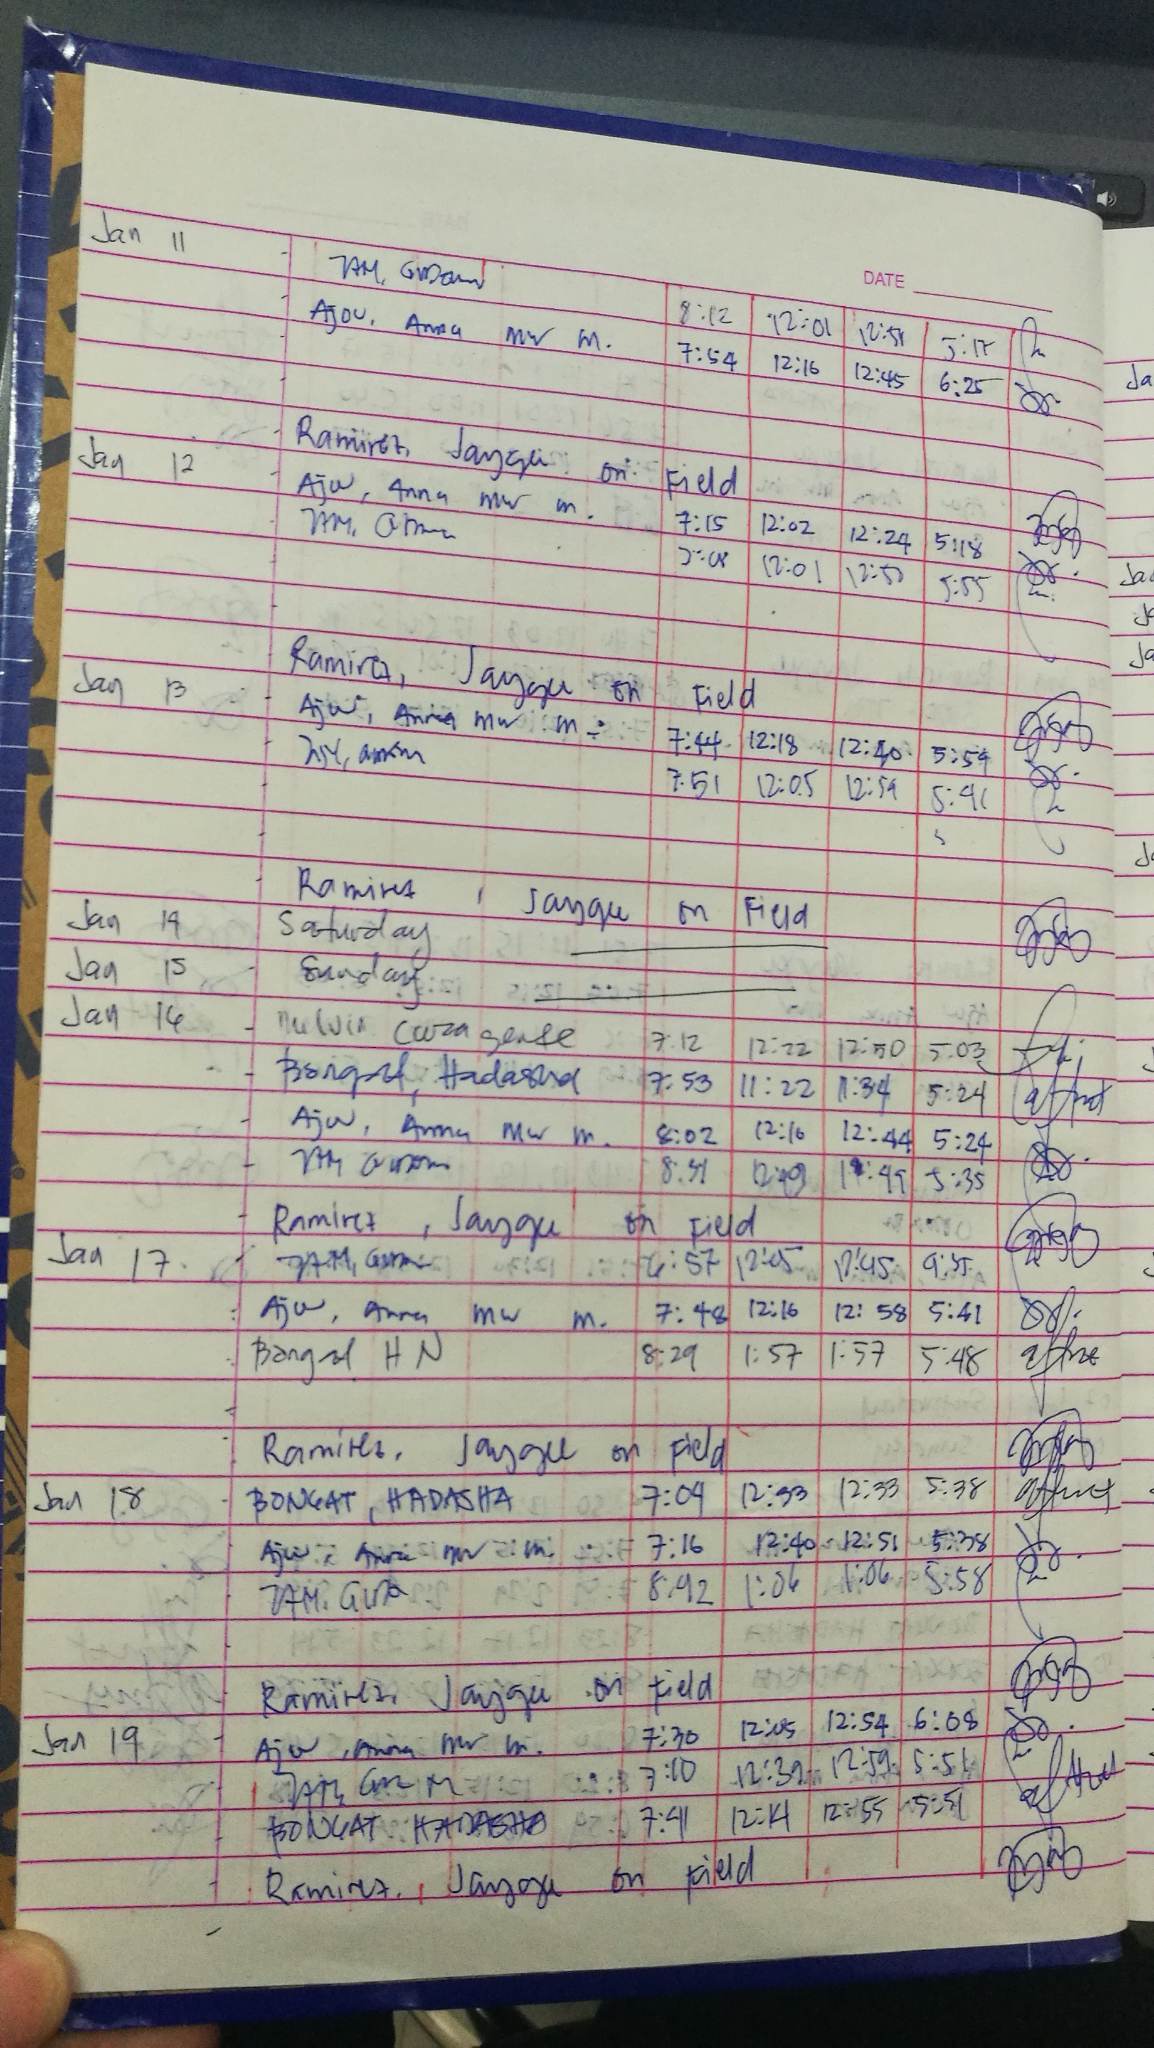 DATE
Jan 11
TAM,
8:12 12:01 12:58 5:17
Ajou, Anna mw m. 7:54 12:16 12:45 6:25
Ramirez, Jayque on Field
Jan 12
Ajw, Anna mw m. 7:15 12:02 12:24 5:18
TAM, 12:01 12:50 5:55
Ramirez, Jayque on Field
Jan 13
Ajw, Anna mw m. 7:44 12:18 12:40 5:59
7:51 12:05 12:59 5:41
Ramirez, Jayque on Field
Jan 14 Saturday
Jan 15 Sunday
Jan 16 7:12 12:22 12:50 5:03
Bongat, Hadasha 7:53 11:22 11:34 5:24
Ajw, Anna mw m. 8:02 12:16 12:44 5:24
TAM 8:31 5:35
Ramirez, Jayque on Field
Jan 17 TAM, 6:57 12:05 12:45
Ajw, Anna mw m. 7:48 12:16 12:58 5:41
Bongat H N 8:29 1:57 1:57 5:48
Ramirez, Jayque on Field
Jan 18 BONGAT, HADASHA 7:04 12:33 12:33 5:38
Ajw, Anna mw m. 7:16 12:40 12:51 5:38
TAM, 8:42 1:06 1:06 5:58
Ramirez, Jayque on Field
Jan 19 Ajw, Anna mw m. 7:30 12:05 12:54 6:08
TAM, 7:10 12:39 12:59 5:51
BONGAT HADASHA 7:41 12:41 12:55 5:51
Ramirez, Jayque on Field